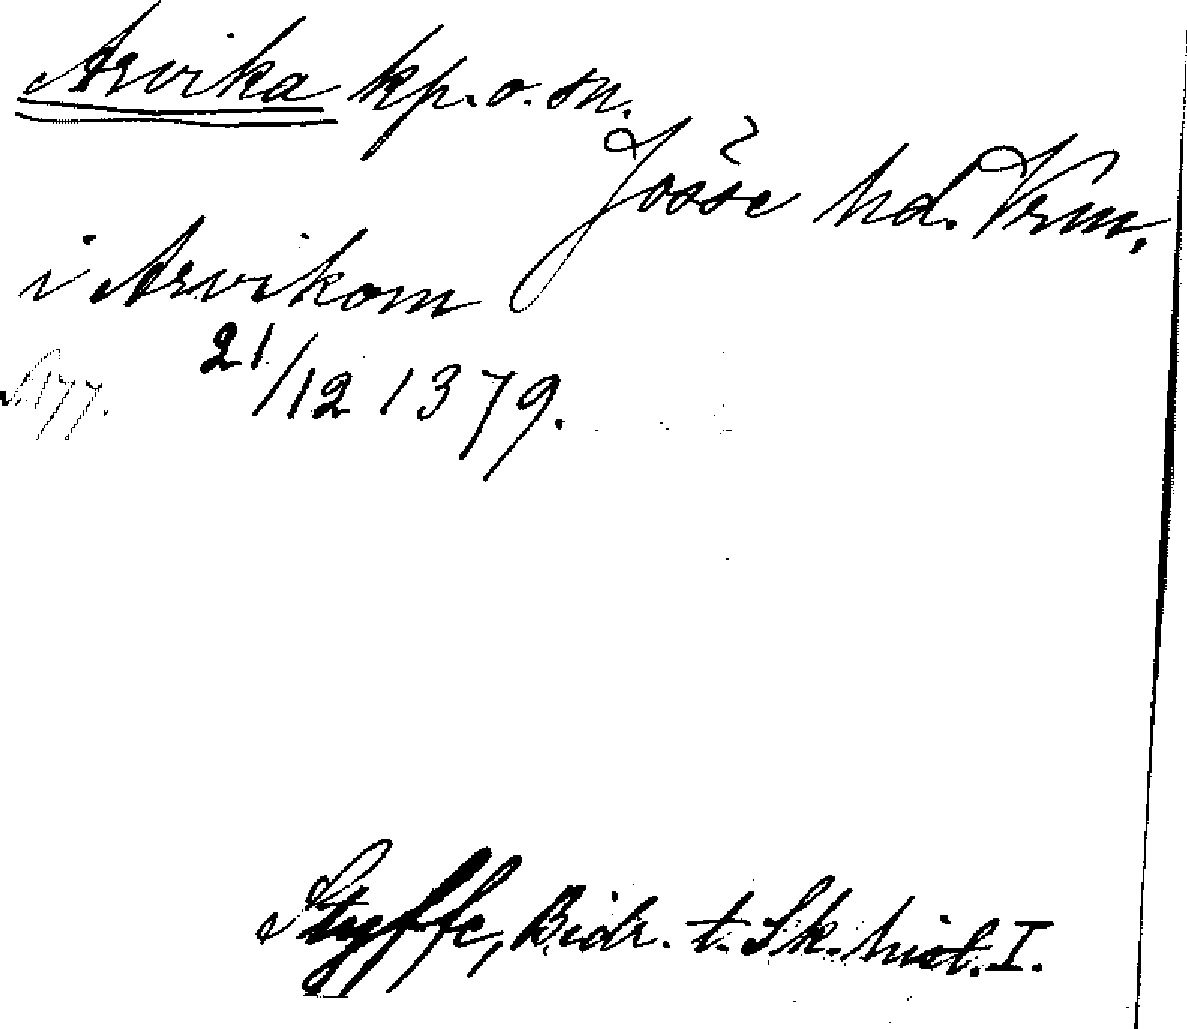 Arvika kp. o. sn.
Jösse hd. Vrm.
i Arvikom
21/12 1379.
S. 177.
Styffe, Bidr. t. Sk. hist. I.